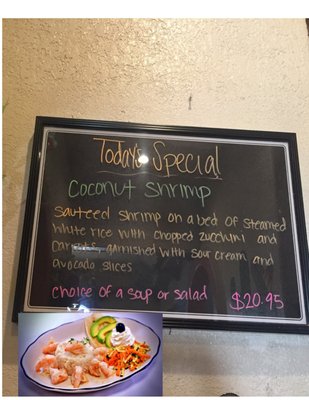 Today's Special
Coconut Shrimp
Sauteed shrimp on a bed of steamed
white rice with chopped zucchini and
carrots garnished with sour cream and
avocado slices
Choice of a soup or salad $20.95